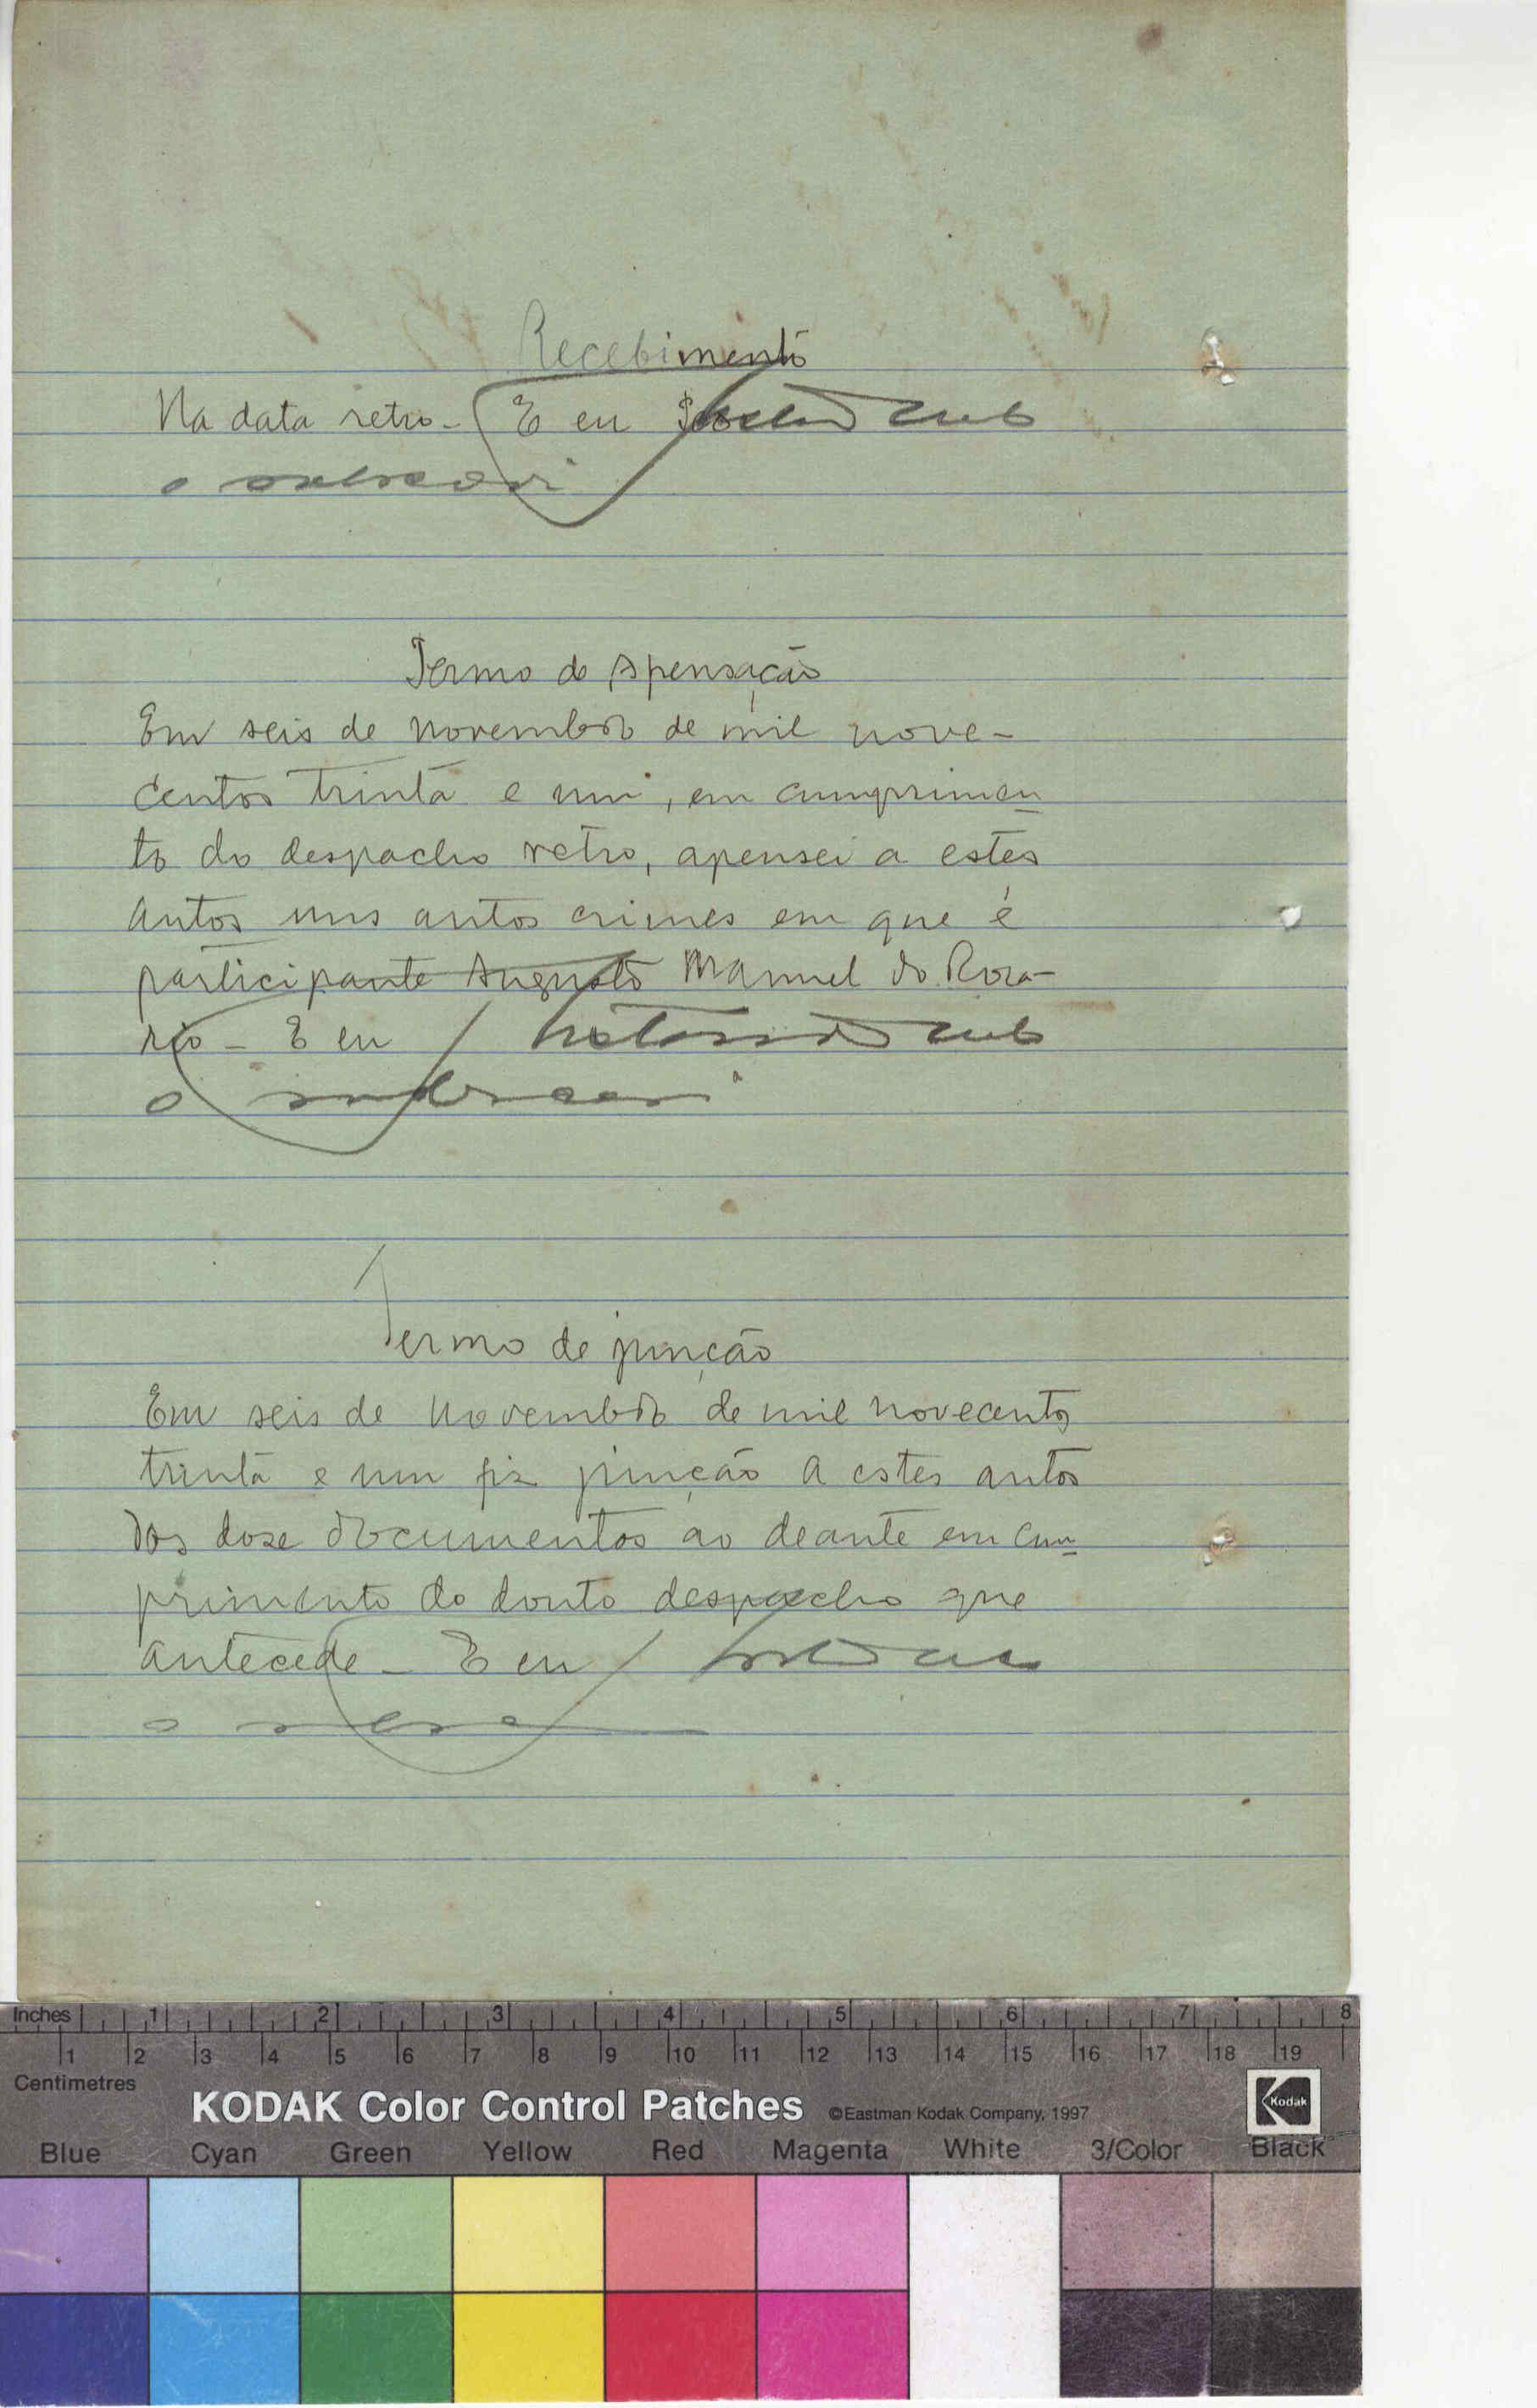 Recebimento
Na data retro - E eu
o subscrevi
Termo de Apensação
Em seis de novembro de mil nove-
centos trinta e um, em cumprimen
to do despacho retro, apensei a estes
autos uns autos crimes em que é
participante Augusto Manuel do Rosa-
rio - E eu
o subscrevi
Termo de junção
Em seis de novembro de mil novecentos
trinta e um fiz junção a estes autos
dos dose documentos ao deante em cum
primento do douto despacho que
antecede - E eu
o
Inches 1 2 3 4 5 6 7 8
1 2 3 4 5 6 7 8 9 10 11 12 13 14 15 16 17 18 19
Centimetres
KODAK Color Control Patches ©Eastman Kodak Company, 1997 Kodak
Blue Cyan Green Yellow Red Magenta White 3/Color Black